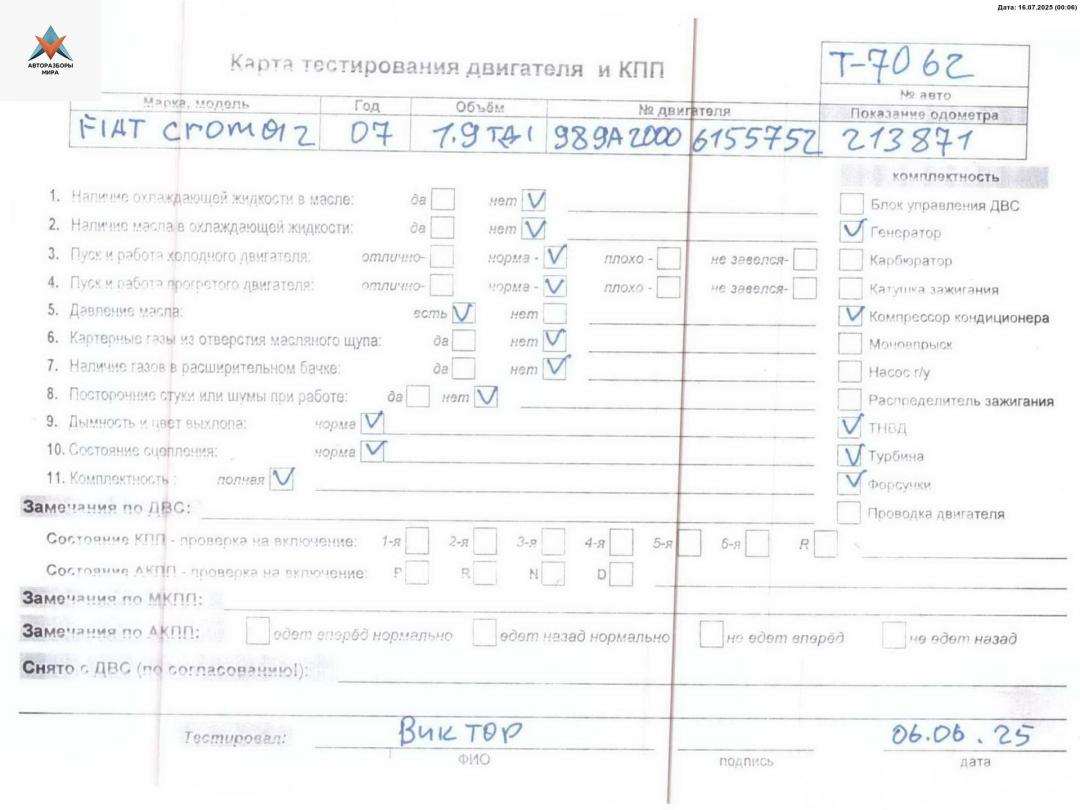 Дата: 16.07.2025 (00:06)
АВТОРАЗБОРЫ
МИРА
Карта тестирования двигателя и КПП
Т-7062
№ авто
Марка, модель Год Объём № двигателя Показание одометра
FIAT Croma 07 1.9 939A2000 6155752 213871
комплектность
1. Наличие охлаждающей жидкости в масле: да нет V
Блок управления ДВС
2. Наличие масла в охлаждающей жидкости: да нет V
V Генератор
3. Пуск и работа холодного двигателя: отлично- норма - V плохо - не завелся-
Карбюратор
4. Пуск и работа прогретого двигателя: отлично- норма - V плохо - не завелся-
Катушка зажигания
5. Давление масла: есть V нет
V Компрессор кондиционера
6. Картерные газы из отверстия масляного щупа: да нет V
Моновпрыск
7. Наличие газов в расширительном бачке: да нет V
Насос г/у
8. Посторонние стуки или шумы при работе: да нет V
Распределитель зажигания
9. Дымность и цвет выхлопа: норма V
V ТНВД
10. Состояние сцепления: норма V
V Турбина
11. Комплектность : полная V
V Форсунки
Замечания по ДВС:
Проводка двигателя
Состояние КПП - проверка на включение: 1-я 2-я 3-я 4-я 5-я 6-я R
Состояние АКПП - проверка на включение: P R N D
Замечания по МКПП:
Замечания по АКПП: едет вперёд нормально едет назад нормально не едет вперёд не едет назад
Снято с ДВС (по согласованию!):
Тестировал: Виктор 06.06.25
ФИО подпись дата